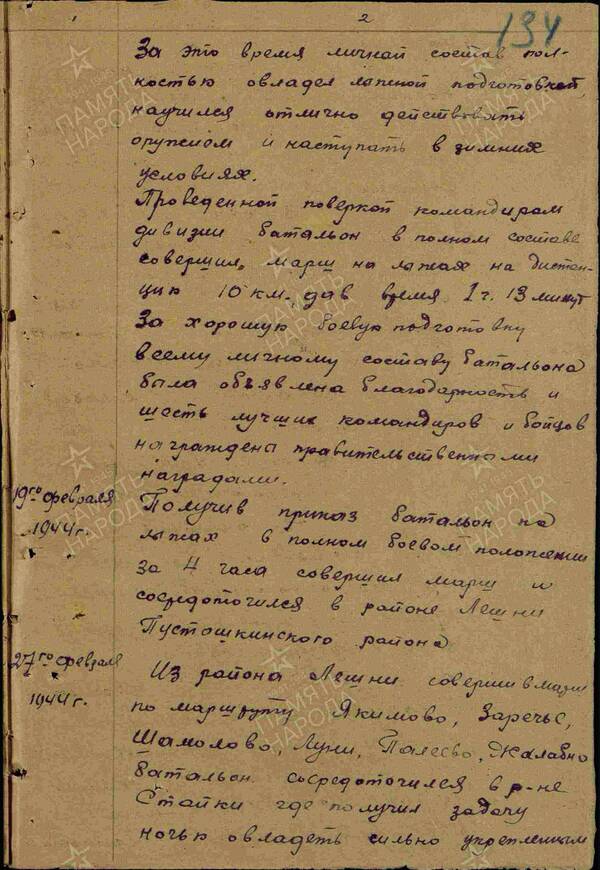 1
2
134
За это время личный состав пол-
ностью овладел лыжной подготовкой,
научился отлично действовать
оружием и наступать в зимних
условиях.
Проведенной поверкой командиром
дивизии батальон в полном составе
совершил, марш на лыжах на дистан-
цию 10 км. дав время 1 ч. 13 минут
За хорошую боевую подготовку
всему личному составу батальона
была объявлена благодарность и
шесть лучших командиров и бойцов
награждены правительственными
наградами.
19го февраля
1944 г.
Получив приказ батальон на
лыжах в полном боевом положении
за 4 часа совершил марш и
сосредоточился в районе Лешни
Пустошкинского района
27го февраля
1944 г.
Из района Лешни совершив марш
по маршруту Якимово, Заречье,
Шамолово, Луни, Палеево, Жалавно
батальон сосредоточился в р-не
Стайки где получил задачу
ночью овладеть сильно укрепленным
ПАМЯТЬ НАРОДА